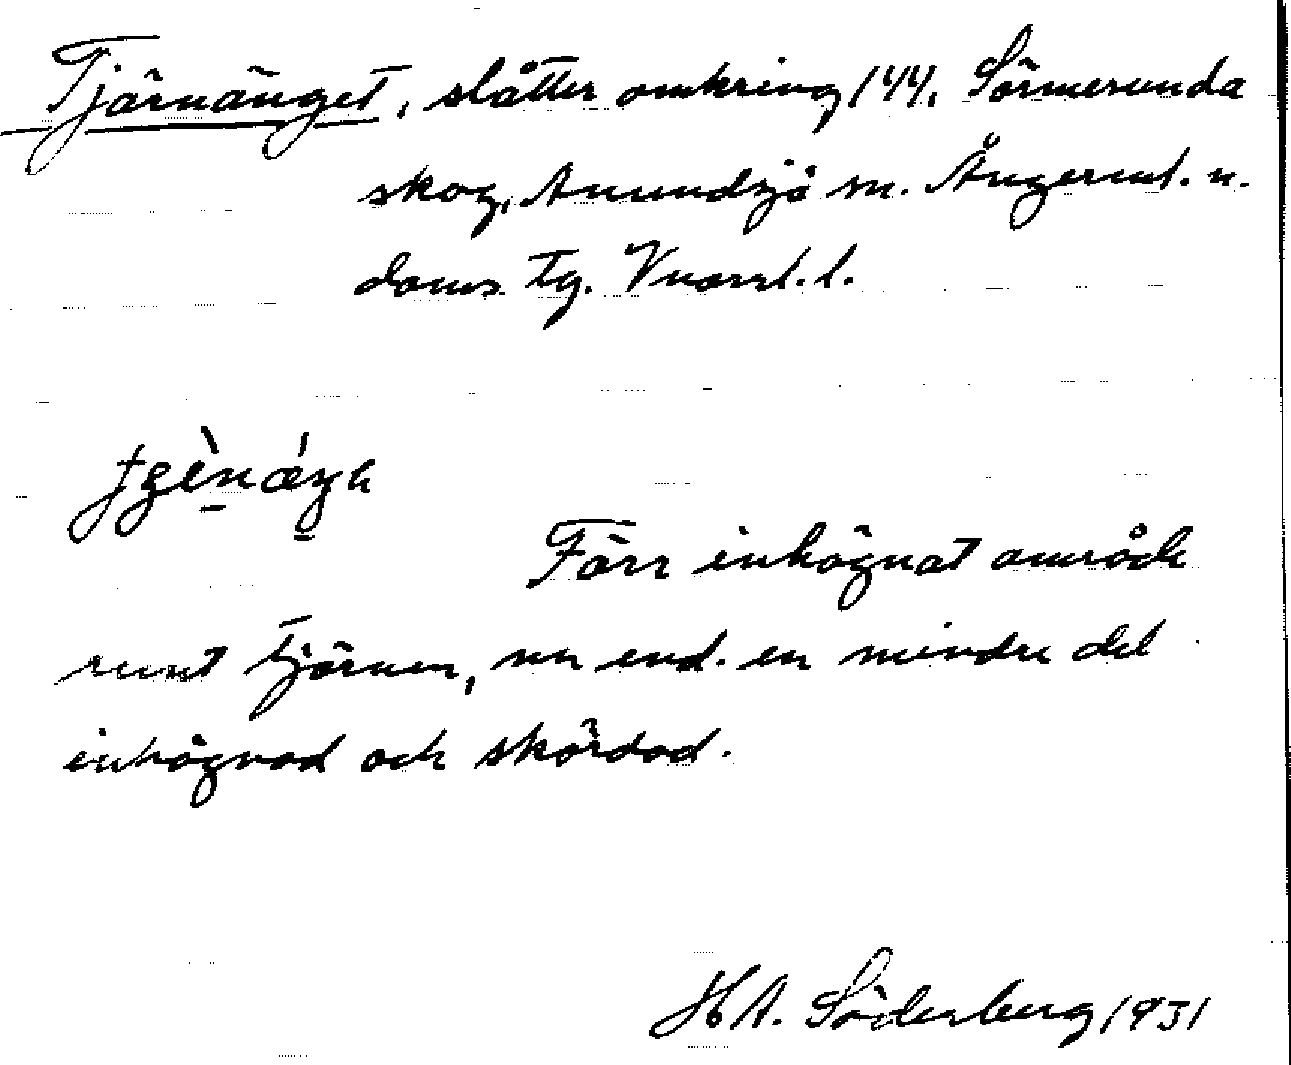 Tjärnänget, slåtter omkring 144, Sörmesunda
skog, Anundsjö sn. Ångerml. n.
doms. tg. Vnorrl. l.
Förr inhägnat område
runt tjärnen, nu end. en mindre del
inhägnad och skördad.
H A. Söderberg 1931